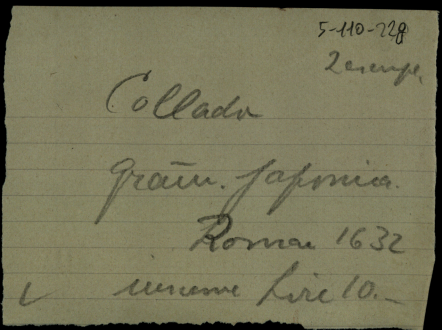 5-110-228
2 exemp.
Collado
gram. Japonica.
Romae 1632
Lire 10.-